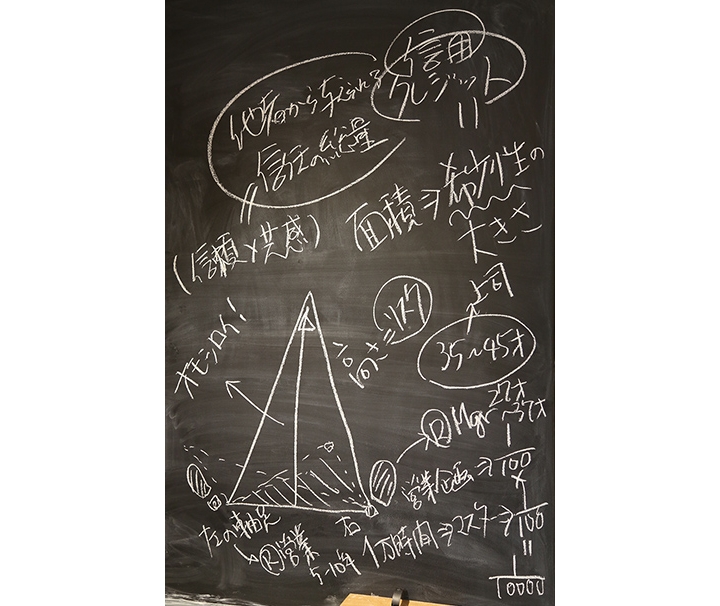 信用
クレジット
=
他者から与えられる
信任の総量
=
(信頼×共感)
面積⇒希少性の
大きさ
上司
35~45才
オモシロイ!
高さ=リスク
27才
~37才
Ⓡ Mgr
1
100
営業企画⇒
×
左の軸足
Ⓡ営業
5-10年
右
1万時間⇒マスター⇒
1
100
=
1
10000